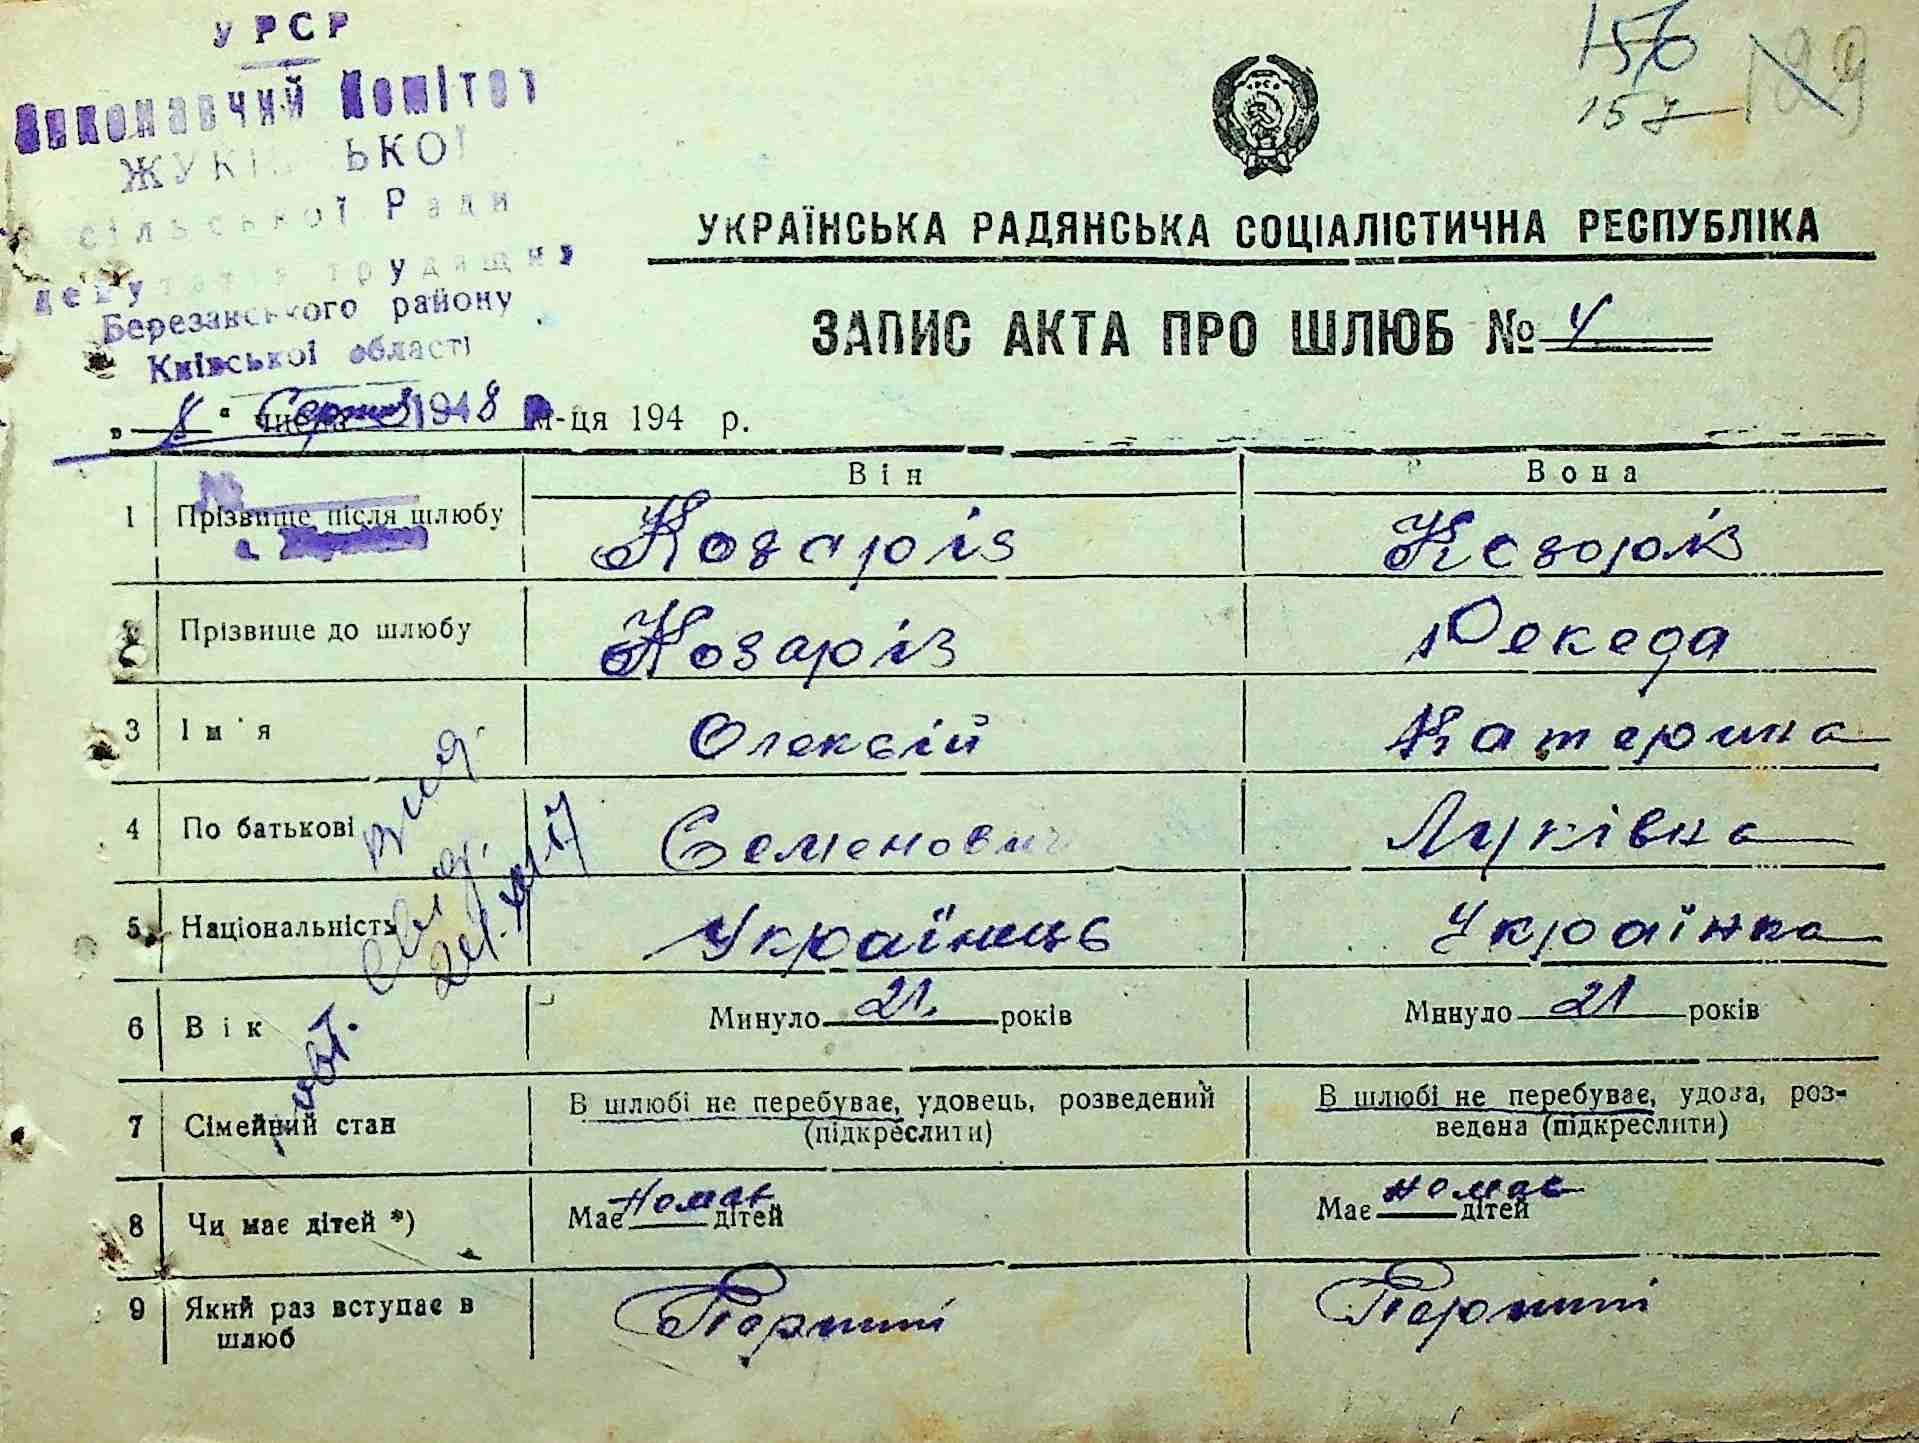 УРСР
Виконавчий Комітет
ЖУКІВСЬКОЇ
сільської Ради
депутатів трудящих
Березанського району
Київської області
156
157
129
УРСР
УКРАЇНСЬКА РАДЯНСЬКА СОЦІАЛІСТИЧНА РЕСПУБЛІКА
ЗАПИС АКТА ПРО ШЛЮБ № 4
„ 8 “ числа Серпня 1948 р м-ця 194 р.
Він Вона
1 Прізвище після шлюбу Козаріз Козоріз
2 Прізвище до шлюбу Козаріз Декеда
3 Ім'я Олексій Катерина
4 По батькові Семенович Луківна
5 Національність Українець Українка
6 Вік Минуло 21 років Минуло 21 років
7 Сімейний стан В шлюбі не перебуває, удовець, розведений (підкреслити) В шлюбі не перебуває, удова, роз-
ведена (підкреслити)
8 Чи має дітей *) Має немає дітей Має немає дітей
9 Який раз вступає в
шлюб Перший Перший